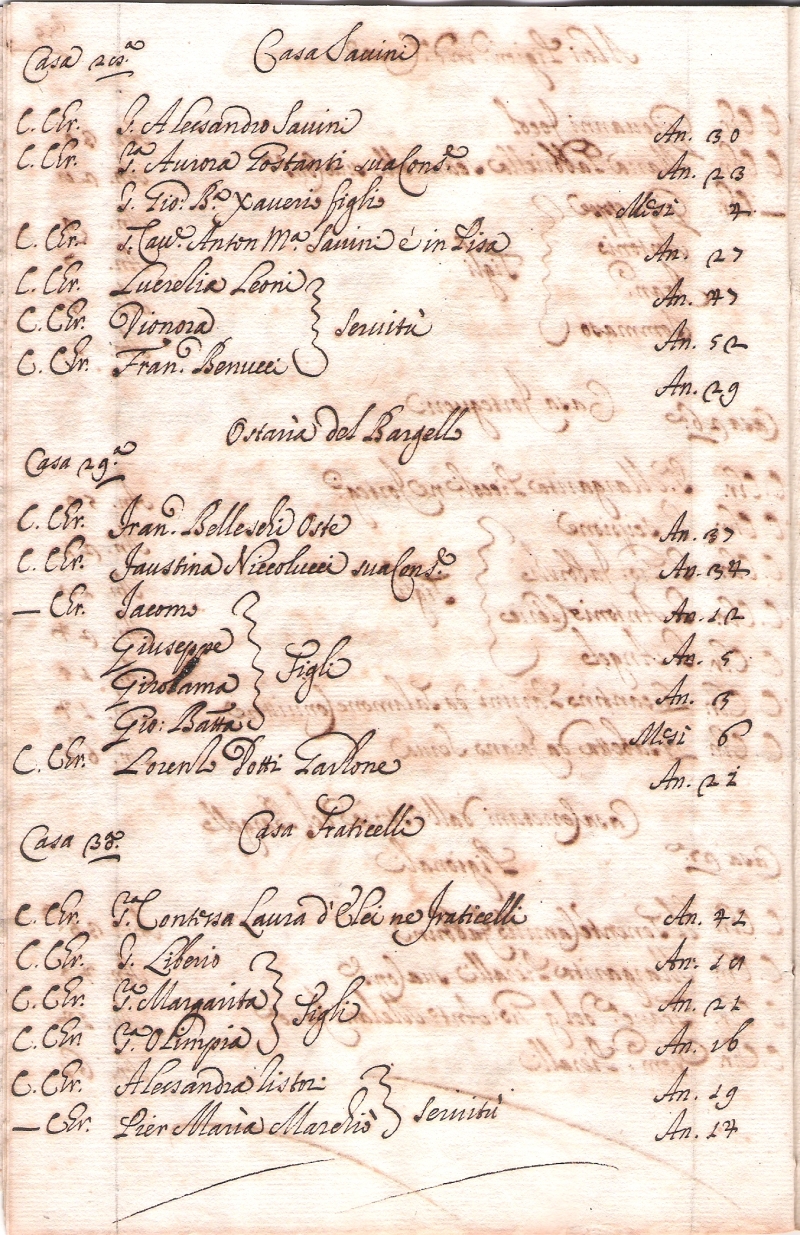 Casa Savini
Casa
C. Cr. S. Alessandro Savini An. 30
C. Cr. S.ra Aurora Costanti sua Cons.e An. 23
S. Gio: B.a Xaverio figli Mesi 4
C. Cr. S. Cav.e Anton M.a Savini è in Pisa An. 27
C. Cr. Lucrelia Leoni An. 47
C. Cr. Dionora servitù An. 52
C. Cr. Fran.o Benucci An. 29
Ostaria del Bargello
Casa 29.a
C. Cr. Fran.o Belleschi Oste An. 37
C. Cr. Faustina Niccolucci sua Cons.e An. 34
— Cr. Iacomo An. 12
Giuseppe An. 5
Girolama Figli An. 3
Gio: Batta Mesi 6
C. Cr. Lorenzo Dotti Garzone An. 22
Casa Fraticelli
Casa 30.a
C. Cr. S.ra Contessa Laura d'Elci ne Fraticelli An. 42
C. Cr. S. Liberio An.
C. Cr. S.ra Margarita figli An. 21
C. Cr. S.ra Olimpia An. 16
C. Cr. Alessandra An. 19
— Cr. Pier Maria servitù An. 14